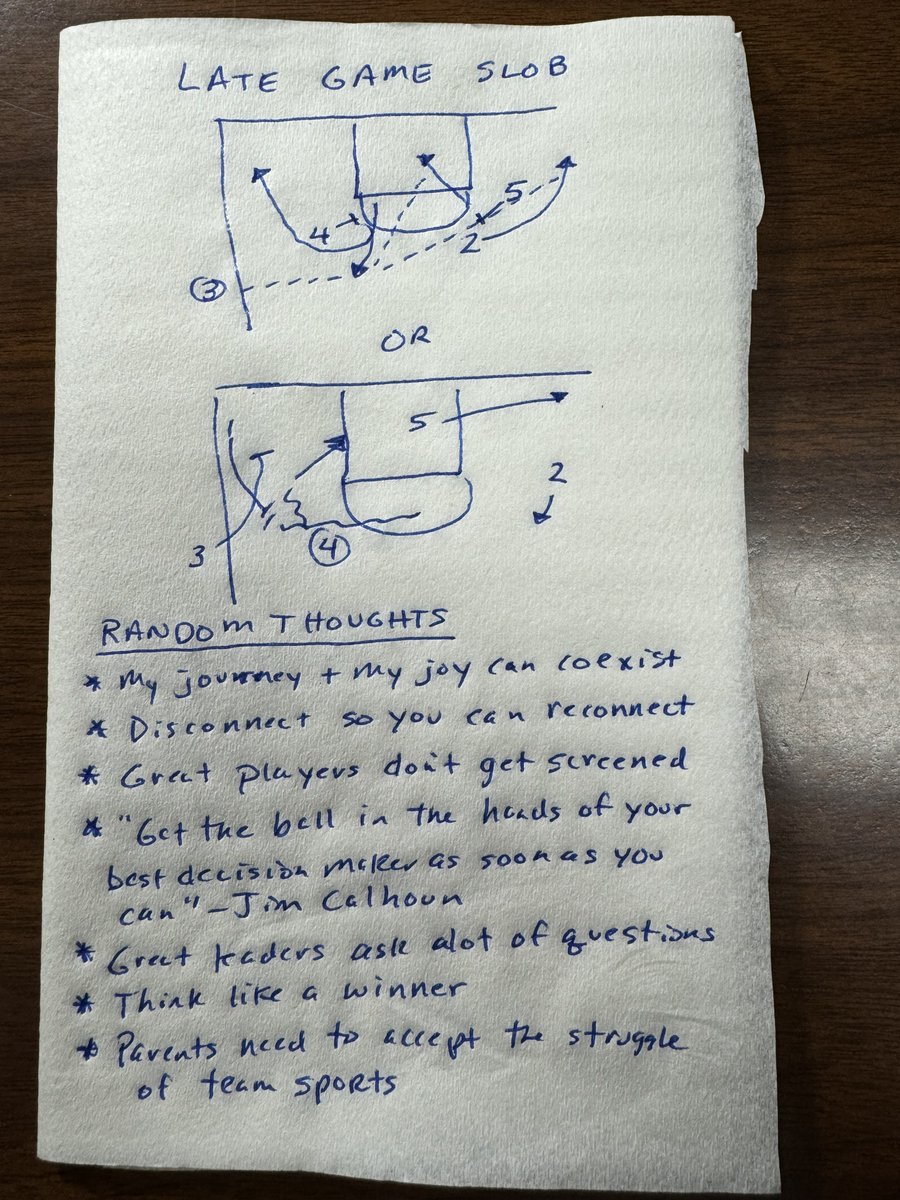 LATE GAME SLOB
5
4
2
3
OR
5
2
3
4
RANDOM THOUGHTS
* My journey + my joy can coexist
* Disconnect so you can reconnect
* Great players don't get screened
* "Get the ball in the hands of your
best decision maker as soon as you
can" - Jim Calhoun
* Great leaders ask alot of questions
* Think like a winner
* Parents need to accept the struggle
of team sports